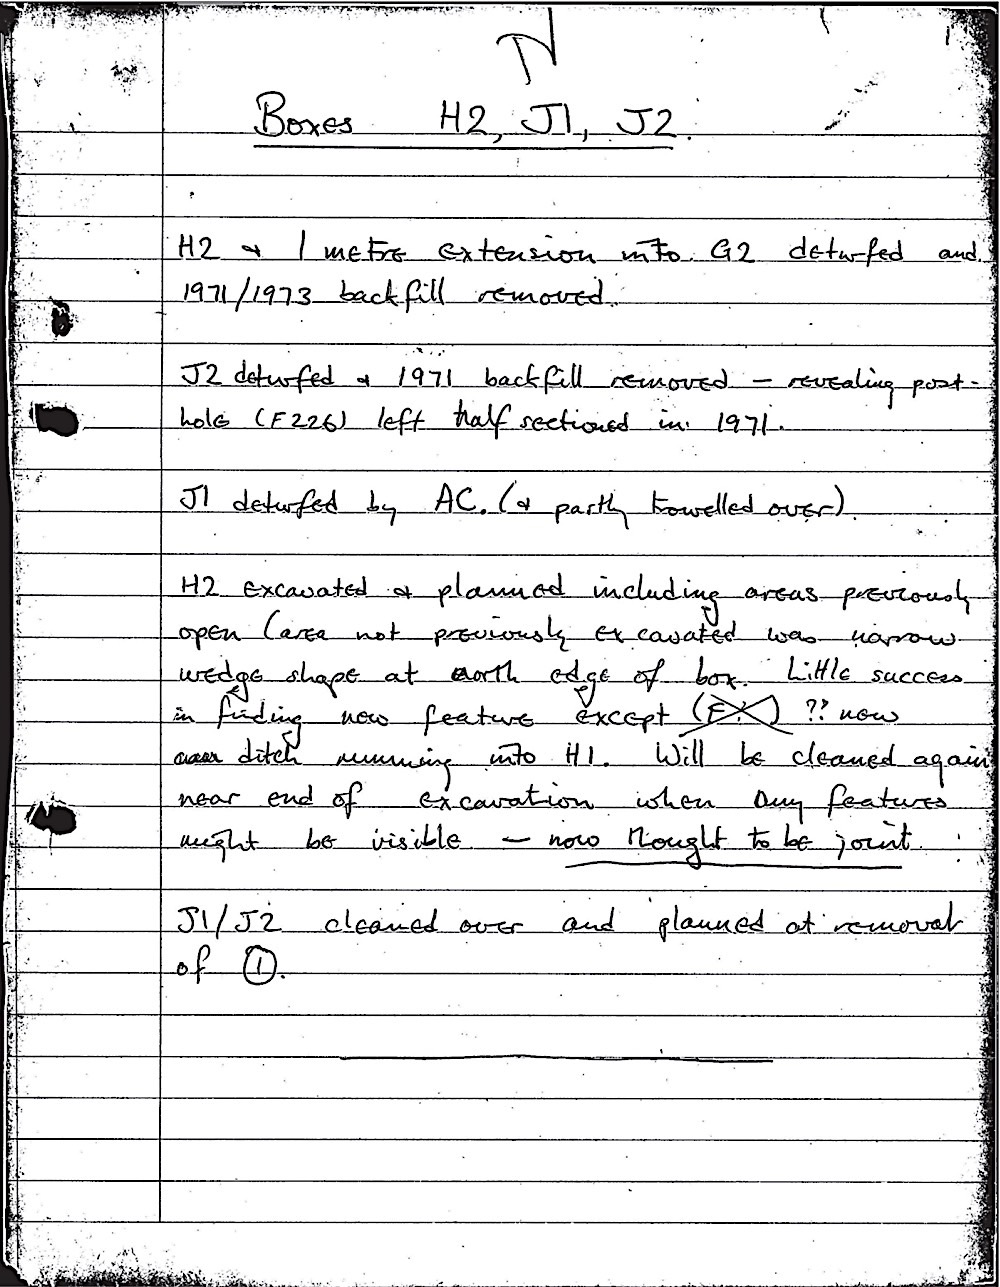 Boxes H2, J1, J2.
H2 & 1 metre extension into G2 deturfed and
1971/1973 backfill removed.
J2 deturfed & 1971 backfill removed – revealing post-
hole (F226) left half sectioned in 1971.
J1 deturfed by AC. (& partly trowelled over)
H2 excavated & planned including areas previously
open (area not previously excavated was narrow
wedge shape at north edge of box. Little success
in finding new feature except ?? new
ditch running into H1. Will be cleaned again
near end of excavation when any features
might be visible – now thought to be joint.
J1/J2 cleaned over and planned at removal
of ①.